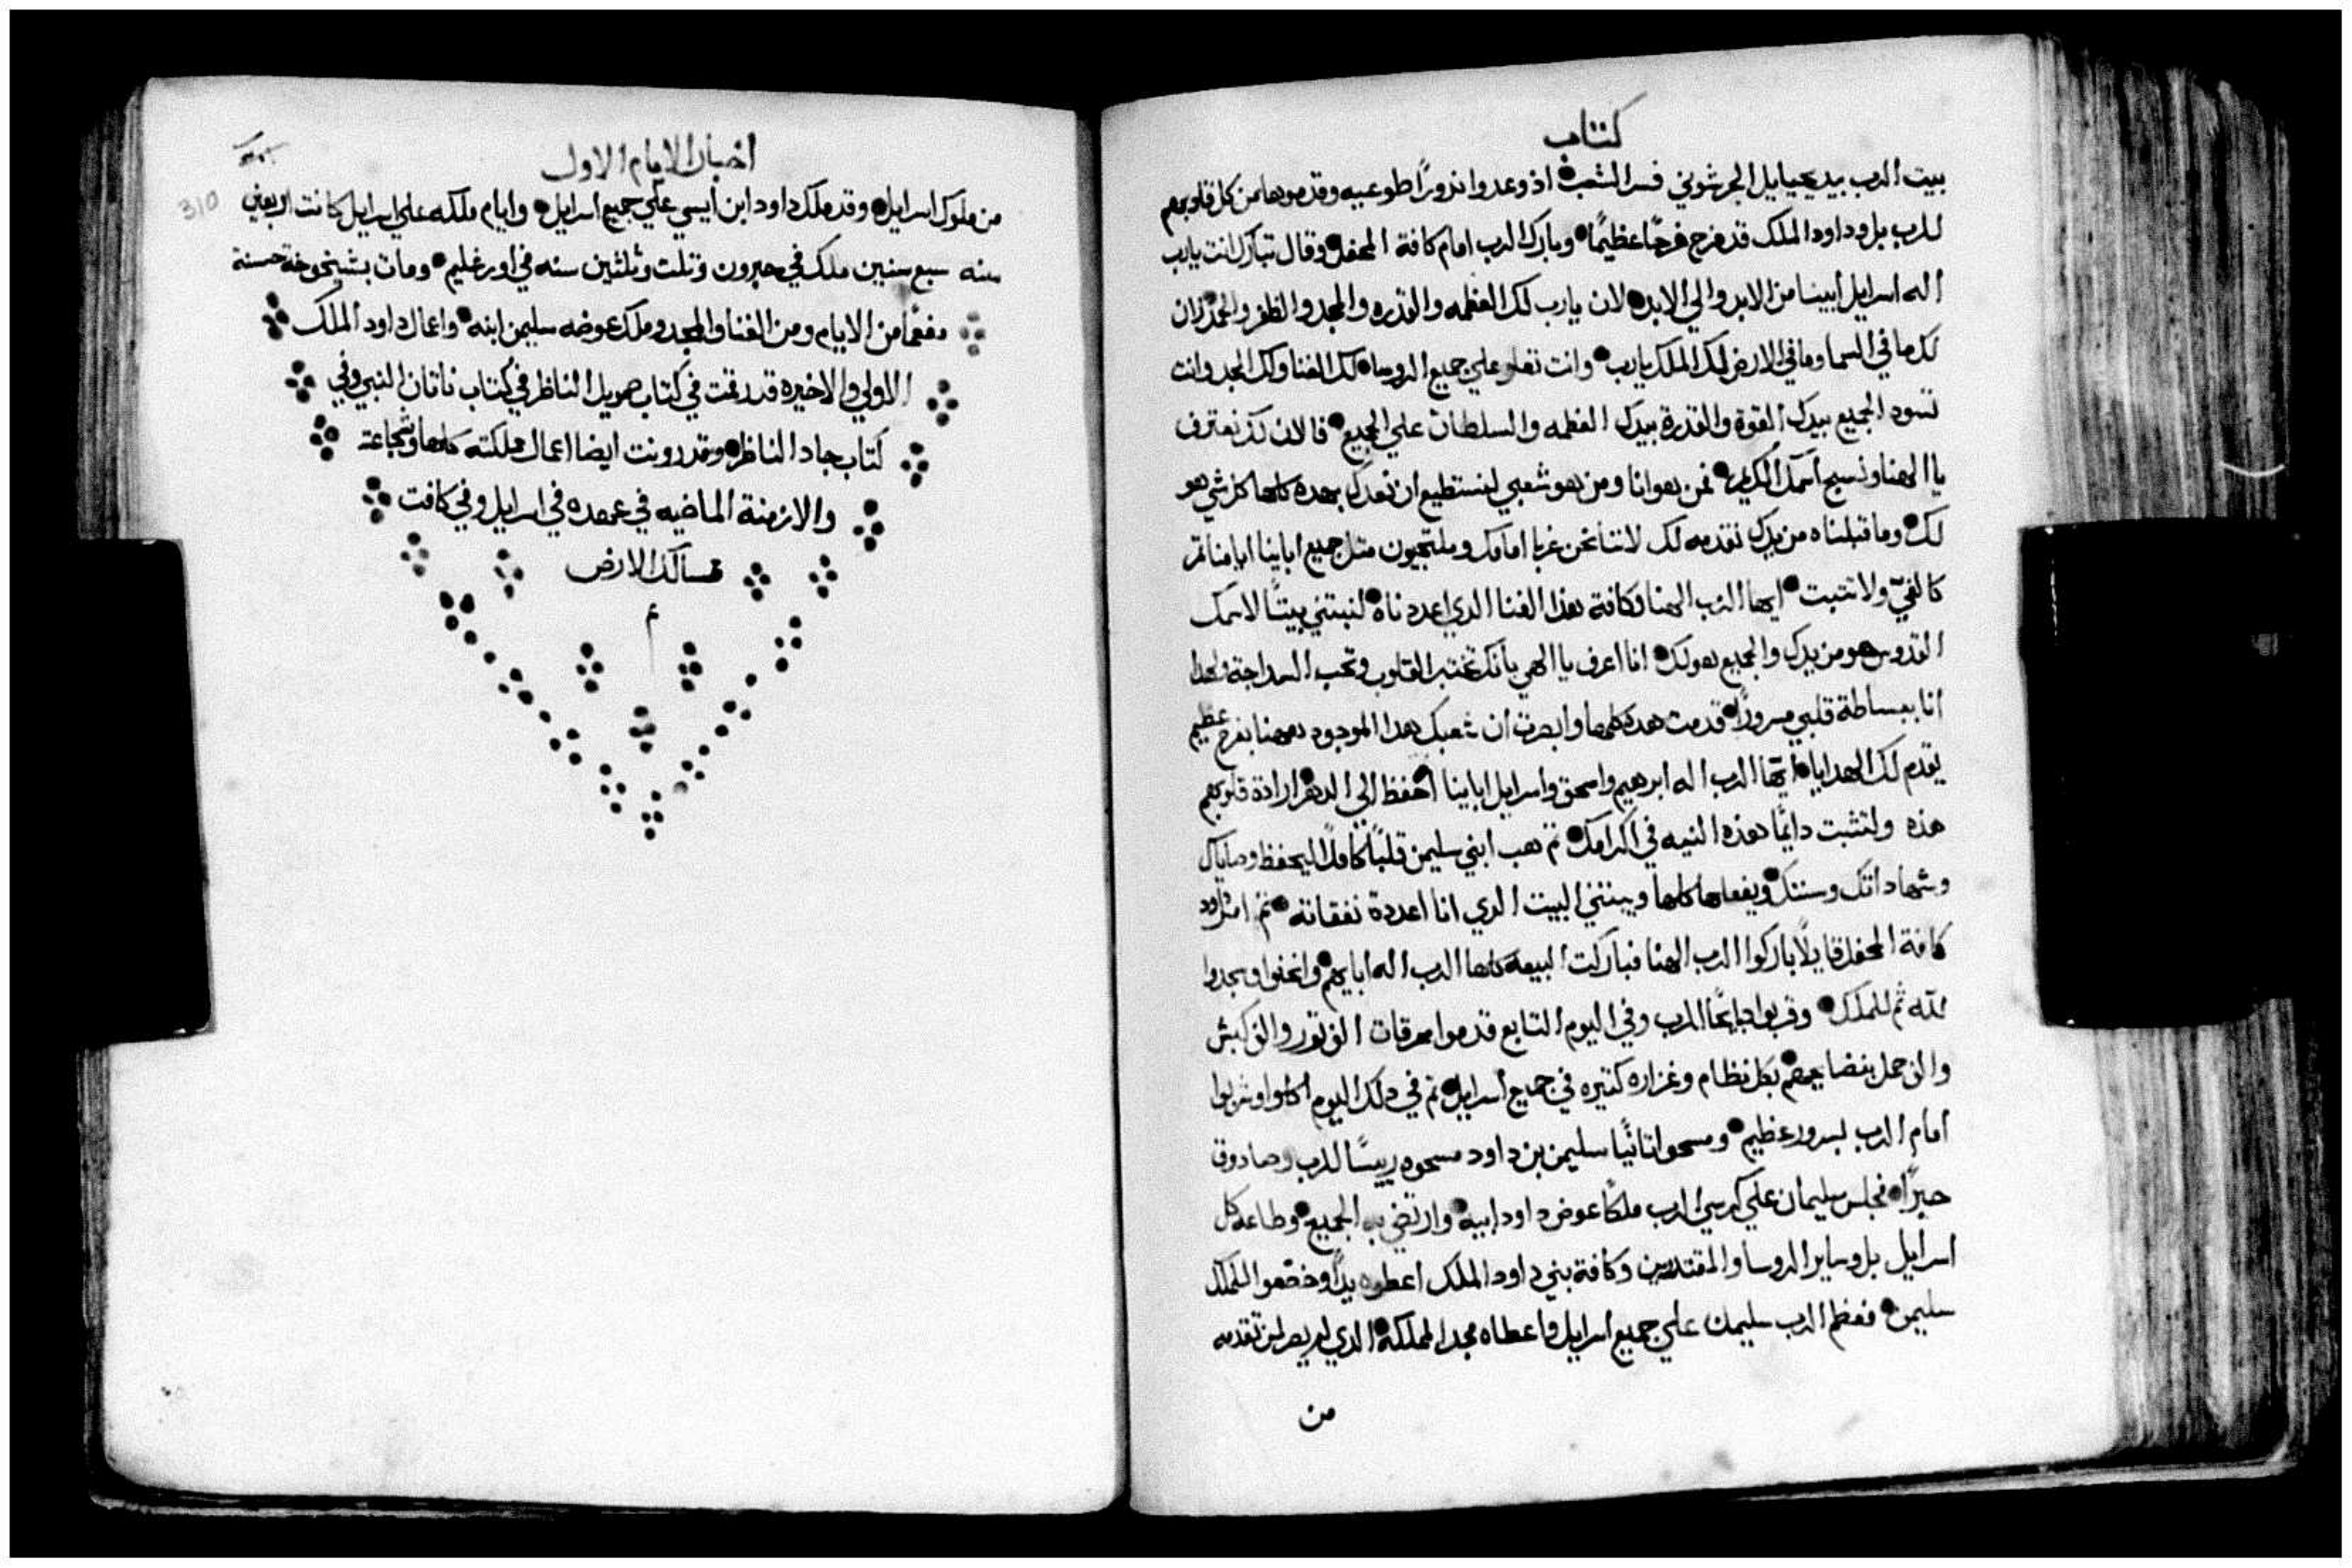 كتاب
بيت الرب بيد يحيايل الجرشوني فسر الشعب اذ وعدوا نذورًا طوعيه وقدموها من كل قلوبهم
للرب بل وداود الملك قد فرح فرحًا عظيمًا وبارك الرب امام كافة المحفل وقال تبارك انت يارب
اله اسرايل ابينا من الابد والي الابد لان يارب لك العظمه والقدره والمجد والظفر والحمد لان
كل ما في السما وما في الارض لك الملك يارب وانت تعلو علي جميع الروسا لك الغنا ولك المجد وانت
تسود الجميع بيدك القوة والقدرة بيدك العظمه والسلطان علي الجميع فالان لك نعترف
يا الهنا ونسبح اسمك الكريم فمن هو انا ومن هو شعبي لنستطيع ان نعدك بهده كلها كل شي هو
لك وما قبلناه من يدك نقدمه لك لاننا نحن غربا امامك وملتجيون متل جميع اباينا ايامنا تمر
كالفيّ ولا تتبت ايها الرب الهنا فكافة هذا الغنا الدي اعددناه لنبتني بيتًا لاسمك
القدوس هو من يدك والجميع هو لك انا اعرف يا الهي بانك تختبر القلوب وتحب السداجة ولهدا
انا ببساطة قلبي مسرورًا قدمت هده كلها وابصرت ان شعبك هدا الموجود ههنا بفرح عظيم
يقدم لك الهدايا ايها الرب اله ابرهيم واسحق واسرايل اباينا احفظ الي الدهر ارادة قلوبهم
هذه ولتثبت دايمًا هذه النيه في اكرامك تم هب ابني سليمن قلبًا كاملًا ليحفظ وصاياك
وشهاداتك وسننك ويفعلها كلها ويبتني البيت الدي انا اعددة نفقاته تم امر داود
كافة المحفل قايلًا باركوا الرب الهنا فباركت البيعه كلها الرب اله ابايهم وانحنوا وسجدوا
لله ثم للملك وقربوا دبايحًا للرب وفي اليوم التابع قدموا محرقات الف تور والف كبش
والف حمل بنضايحهم بكل نظام وغزاره كتيره في جميع اسرايل تم في دلك اليوم اكلوا وشربوا
امام الرب بسرور عظيم ومسحوا تانيًا سليمن بن داود مسحوه رييسًا للرب وصادوق
حبرًا فجلس سليمان علي كرسي الرب ملكًا عوض داود ابيه وارتضي به الجميع وطاعه كل
اسرايل بل وساير الروسا والمقتدرين وكافة بني داود الملك اعطوه يدًا وخضعوا للملك
سليمن فعظم الرب سليمان علي جميع اسرايل واعطاه مجد المملكة الدي لم يصر لمن تقدمه
من
اخبار الايام الاول
310
من ملوك اسرايل وقد ملك داود ابن ايسي علي جميع اسرايل وايام ملكه علي اسرايل كانت اربعين
سنه سبع سنين ملك في حبرون وتلت وثلثين سنه في اورشليم ومات بشيخوخة حسنة
مفعمًا من الايام ومن الغنا والمجد وملك عوضه سليمن ابنه واعمال داود الملك
الاولي والاخيره قد رقمت في كتاب صمويل الناظر في كتاب ناتان النبي وفي
كتاب جاد الناظر وقد دونت ايضا اعمال مملكته كلها وشجاعته
والازمنة الماضيه في عهده في اسرايل وفي كافت
ممسالك الارض
م